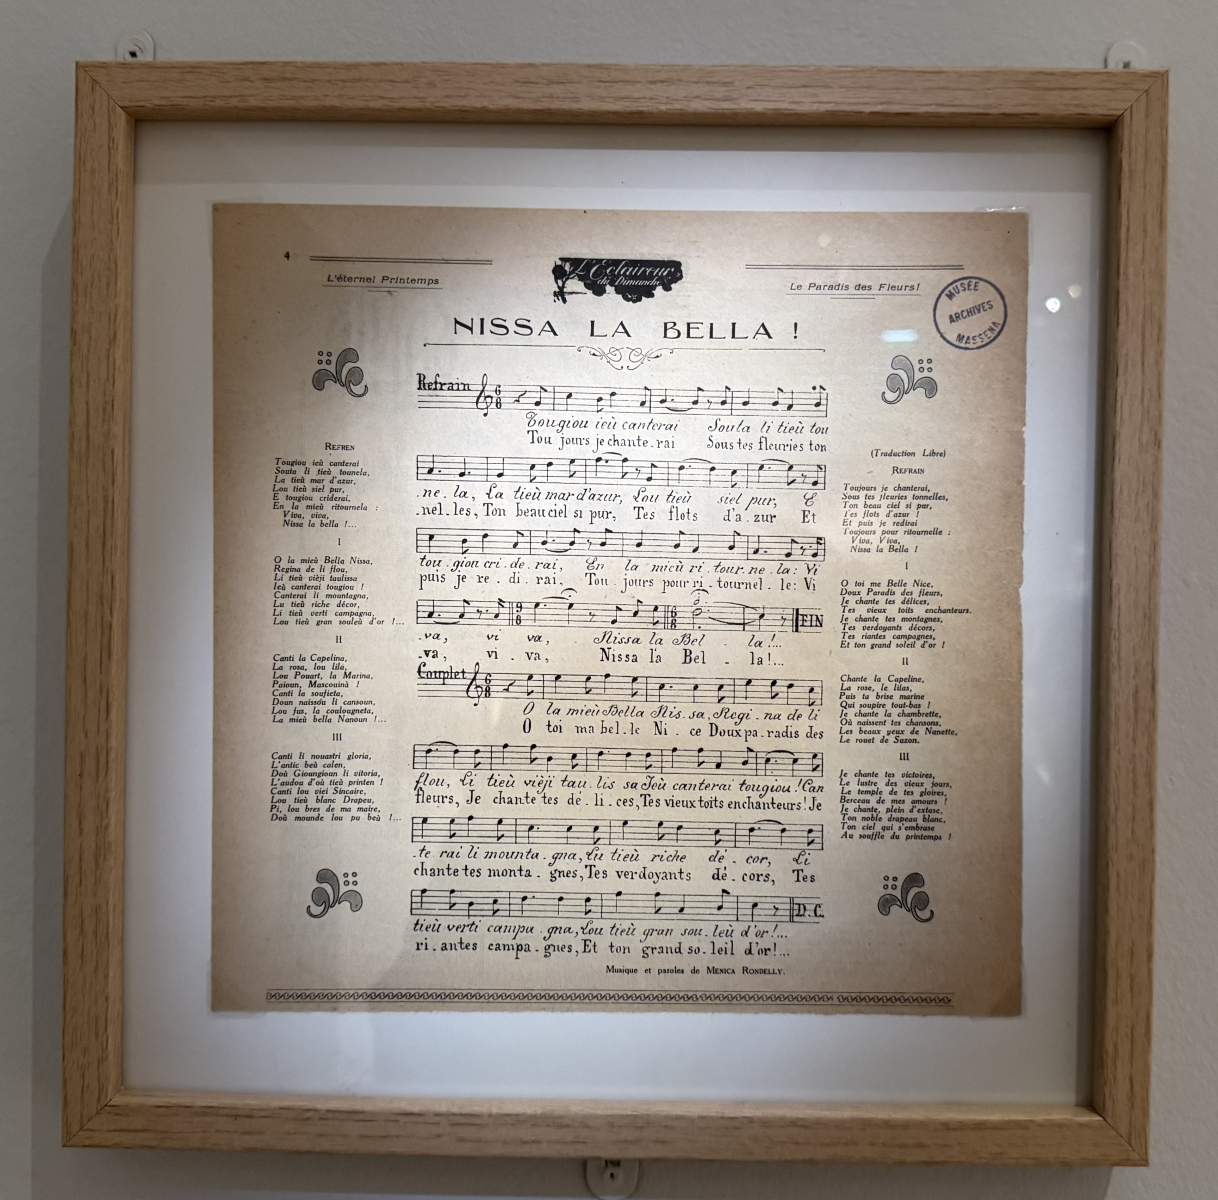 4
L'éternel Printemps
L'Eclaireur
du Dimanche
Le Paradis des Fleurs!
MUSÉE
ARCHIVES
MASSENA
NISSA LA BELLA !
Refrain
Tougiou ieù canterai Souta li tieù tou
Tou jours je chante. rai Sous tes fleuries ton
.ne. la, La tieù mar d'azur, Lou tieù siel pur, E
.nel. les, Ton beau ciel si pur, Tes flots d'a. zur Et
tou. giou cri. de. rai, En la mieù ri. tour. ne. la: Vi
puis je re. di. rai, Tou. jours pour ri. tournel. le: Vi
.va, vi va, Nissa la Bel . la!...
.va, vi . va, Nissa la Bel . la!...
FIN
Couplet
O la mieù Bella Nis. sa, Regi. na de li
O toi ma bel. le Ni. ce Doux pa. radis des
flou, Li tieù vièji tau. lis sa Ieù canterai tougiou! Can
fleurs, Je chante tes dé. li. ces, Tes vieux toits enchanteurs! Je
.te rai li mounta. gna, Lu tieù riche dé. cor, Li
chante tes monta. gnes, Tes verdoyants dé. cors, Tes
tieù verti campa. gna, Lou tieù gran sou. leù d'or!...
ri. antes campa. gnes, Et ton grand so. leil d'or!...
D.C.
Musique et paroles de MENICA RONDELLY.
REFREN
Tougiou ieù canterai
Souta li tieù tounela,
La tieù mar d'azur,
Lou tieù siel pur,
E tougiou criderai,
En la mieù ritournela :
Viva, viva,
Nissa la bella !...
I
O la mieù Bella Nissa,
Regina de li flou,
Li tieù vièji taulissa
Ieù canterai tougiou !
Canterai li mountagna,
Lu tieù riche décor,
Li tieù verti campagna,
Lou tieù gran souleù d'or !...
II
Canti la Capelina,
La rosa, lou lila,
Lou Pouart, la Marina,
Paioun, Mascouinà !
Canti la soufieta,
Doun naissòu li cansoun,
Lou fus, la coulougneta,
La mieù bella Nanoun !...
III
Canti li nouastri gloria,
L'antic beù calen,
Doù Gioungioun li vitoria,
L'audou d'où tieù printen !
Canti lou viei Sincaire,
Lou tieù blanc Drapeu,
Pi, lou bres de ma maire,
Doù mounde lou pu beù !...
(Traduction Libre)
REFRAIN
Toujours je chanterai,
Sous tes fleuries tonnelles,
Ton beau ciel si pur,
Tes flots d'azur !
Et puis je redirai
Toujours pour ritournelle :
Viva, Viva,
Nissa la Bella !
I
O toi me Belle Nice,
Doux Paradis des fleurs,
Je chante tes délices,
Tes vieux toits enchanteurs.
Je chante tes montagnes,
Tes verdoyants décors,
Tes riantes campagnes,
Et ton grand soleil d'or !
II
Chante la Capeline,
La rose, le lilas,
Puis ta brise marine
Qui soupire tout-bas !
Je chante la chambrette,
Où naissent tes chansons,
Les beaux yeux de Nanette,
Le rouet de Suzon.
III
Je chante tes victoires,
Le lustre des vieux jours,
Le temple de tes gloires,
Berceau de mes amours !
Je chante, plein d'extase,
Ton noble drapeau blanc,
Ton ciel qui s'embrase
Au souffle du printemps !